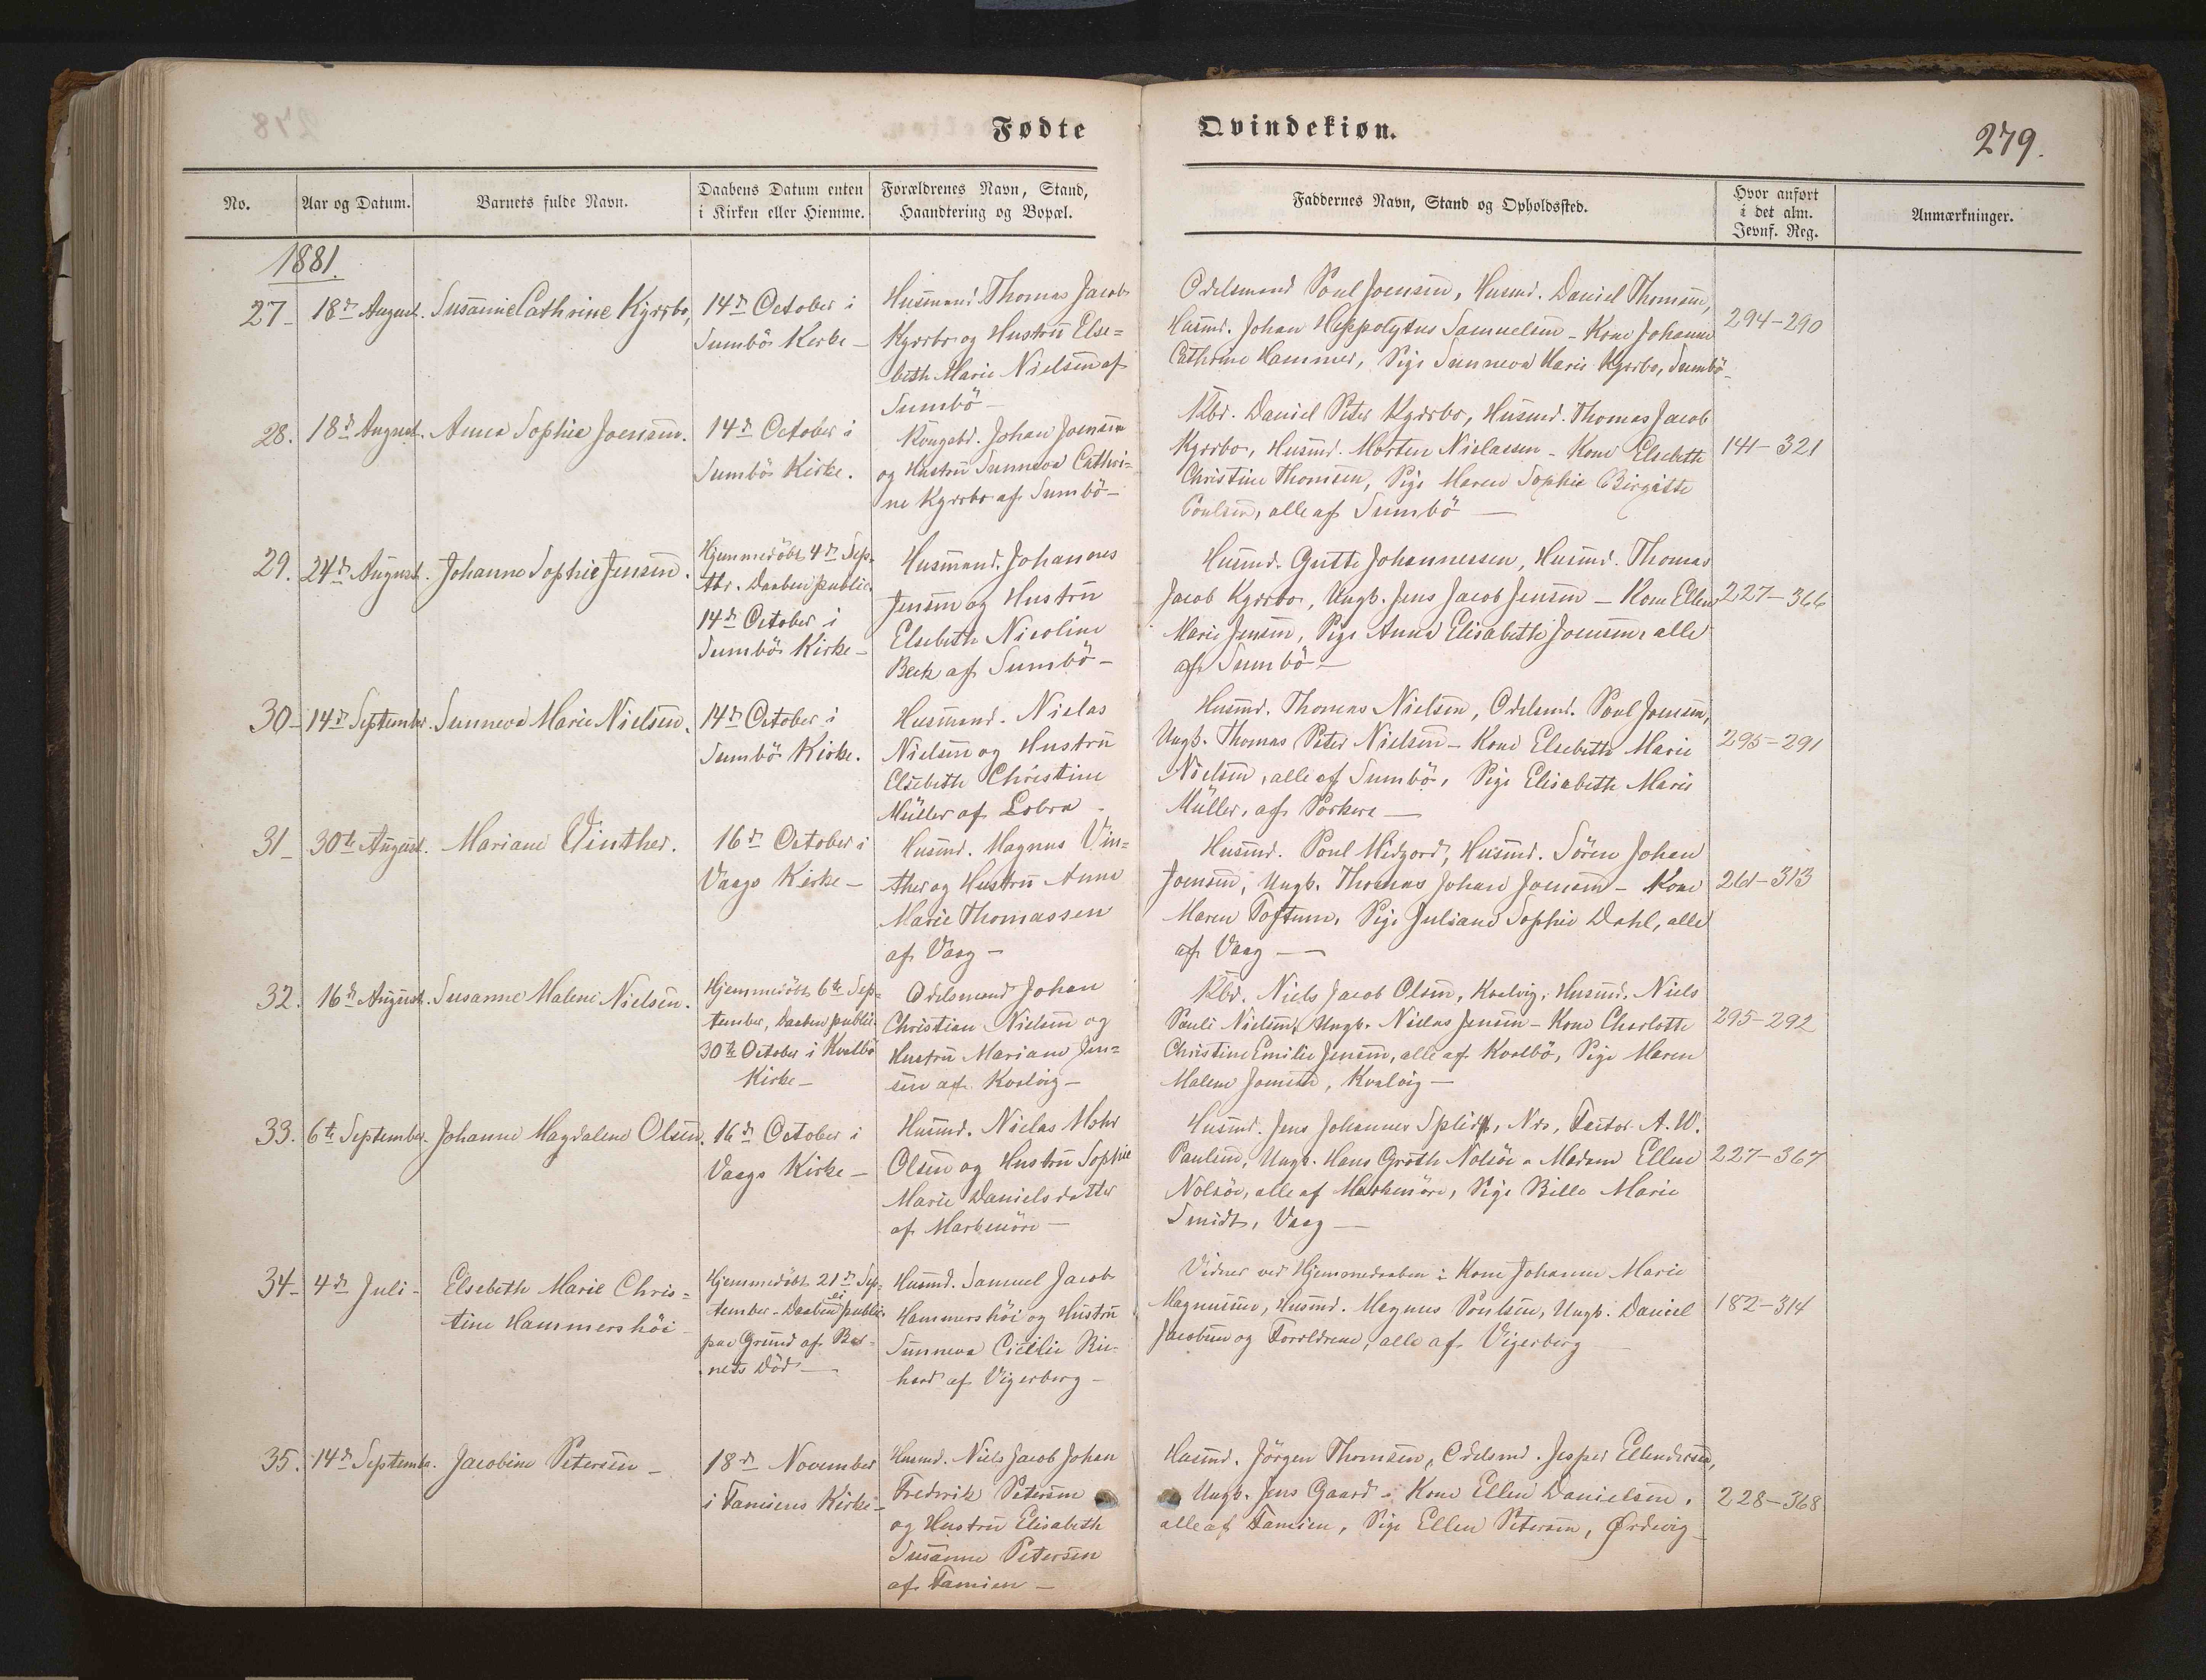 Fødte
Qvindekiøn.
279.
No.
Aar og Datum.
Barnets fulde Navn.
Daabens Datum enten
i Kirken eller Hiemme.
Forældrenes Navn, Stand,
Haandtering og Bopæl.
Faddernes Navn, Stand og Opholdssted.
Hvor anført
i det alm.
Jevnf. Reg.
Anmærkninger.
1881.
27 -
18de August.
Susanne Cathrine Kjærbo,
14de October i
Sumbö Kirke -
Husmand. Thomas Jacob
Kjærbo og Hustru Else=
beth Marie Nielsen af
Sumbö -
Odelsmand Poul Joensen, Husmd. Daniel Thomsen,
Husmd. Johan Heppolytus Samuelsen - Kone Johanne
Cathrine Hammer, Pige Sunneva Marie Kjærbo, Sumbö -
294-290
28.
18de August.
Anna Sophie Joensen.
14de October i
Sumbö Kirke.
Kongsbd. Johan Joensen
og Hustru Sunneva Cathri=
ne Kjærbo af Sumbö -
Kbd. Daniel Peter Kjærbo, Husmd. Thomas Jacob
Kjærbo, Husmd. Morten Niclassen - Kone Elsebeth
Christine Thomsen, Pige Maren Sophie Birgitte
Poulsen, alle af Sumbö -
141-321
29.
24de August.
Johanne Sophie Jensen.
Hjemmedöbt 4de Sep=
tbr. Daaben public.
14de October i
Sumbö Kirke -
Husmand. Johannes
Jensen og Hustru
Elsebeth Nicoline
Beck af Sumbö -
Husmd. Gutte Johannessen, Husmd. Thomas
Jacob Kjærbo, Ungk. Jens Jacob Jensen - Kone Ellen
Marie Jensen, Pige Anne Elisabeth Joensen, alle
af Sumbö -
227-366
30 -
14de September.
Sunneva Marie Nielsen.
14de October i
Sumbö Kirke.
Husmand. Niclas
Nielsen og Hustru
Elsebeth Christine
Müller af Lobra -
Husmd. Thomas Nielsen, Odelsmd. Poul Joensen,
Ungk. Thomas Peter Nielsen - Kone Elsebeth Marie
Nielsen, alle af Sumbö, Pige Elisabeth Marie
Müller, af Porkere -
295-291
31 -
30te August.
Mariane Vinther.
16de October i
Vaags Kirke -
Husmd. Magnus Vin=
ther og Hustru Anne
Marie Thomassen
af Vaag -
Husmd. Poul Midgord, Husmd. Sören Johan
Joensen, Ungk. Thomas Johan Joensen - Kone
Maren Toftum, Pige Juliane Sophie Dahl, alle
af Vaag -
261-313
32.
16de August.
Susanne Malene Nielsen.
Hjemmedöbt 6te Sep=
tember, Daaben public.
30te October i Kvalbö
Kirke -
Odelsmand Johan
Christian Nielsen og
Hustru Mariane Jen=
sen af Kvalvig -
Kbd. Niels Jacob Olsen, Kvalvig, Husmd. Niels
Pauli Nielsen, Ungk. Niclas Jensen - Kone Charlotte
Christine Emilie Jensen, alle af Kvalbö, Pige Maren
Malene Joensen, Kvalvig -
295-292
33.
6te September.
Johanne Magdalene Olsen.
16de October i
Vaags Kirke -
Husmd. Niclas Mohr
Olsen og Hustru Sophie
Marie Danielsdatter
af Markenöre -
Husmd. Jens Johannes Splid, Næs, Factor A. W.
Paulsen, Ungk. Hans Groth Nolsöe - Madam Ellen
Nolsöe, alle af Markenöre, Pige Bille Marie
Smidt, Vaag -
227-367
34 -
4de Juli -
Elsebeth Marie Chris=
tine Hammershöi -
Hjemmedöbt 21de Sep=
tember - Daaben ei public.
paa Grund af Bar=
nets Död -
Husmd. Samuel Jacob
Hammershöi og Hustru
Sunneva Cicilie Ri=
hard af Vigerberg -
Vidner ved Hjemmedaaben: Kone Johanne Marie
Magnussen, Husmd. Magnus Poulsen, Ungk. Daniel
Jacobsen og Forældrene, alle af Vigerberg
182-314
35.
14de Septembr.
Jacobine Petersen -
18de November
i Famiens Kirke -
Husmd. Niels Jacob Johan
Fredrik Petersen
og Hustru Elisabeth
Susanne Petersen
af Famien -
Husmd. Jörgen Thomsen, Odelsmd. Jesper Ellendersen,
Ungk. Jens Gaard - Kone Ellen Danielsen,
alle af Famien, Pige Ellen Petersen, Ørdevig -
228-368